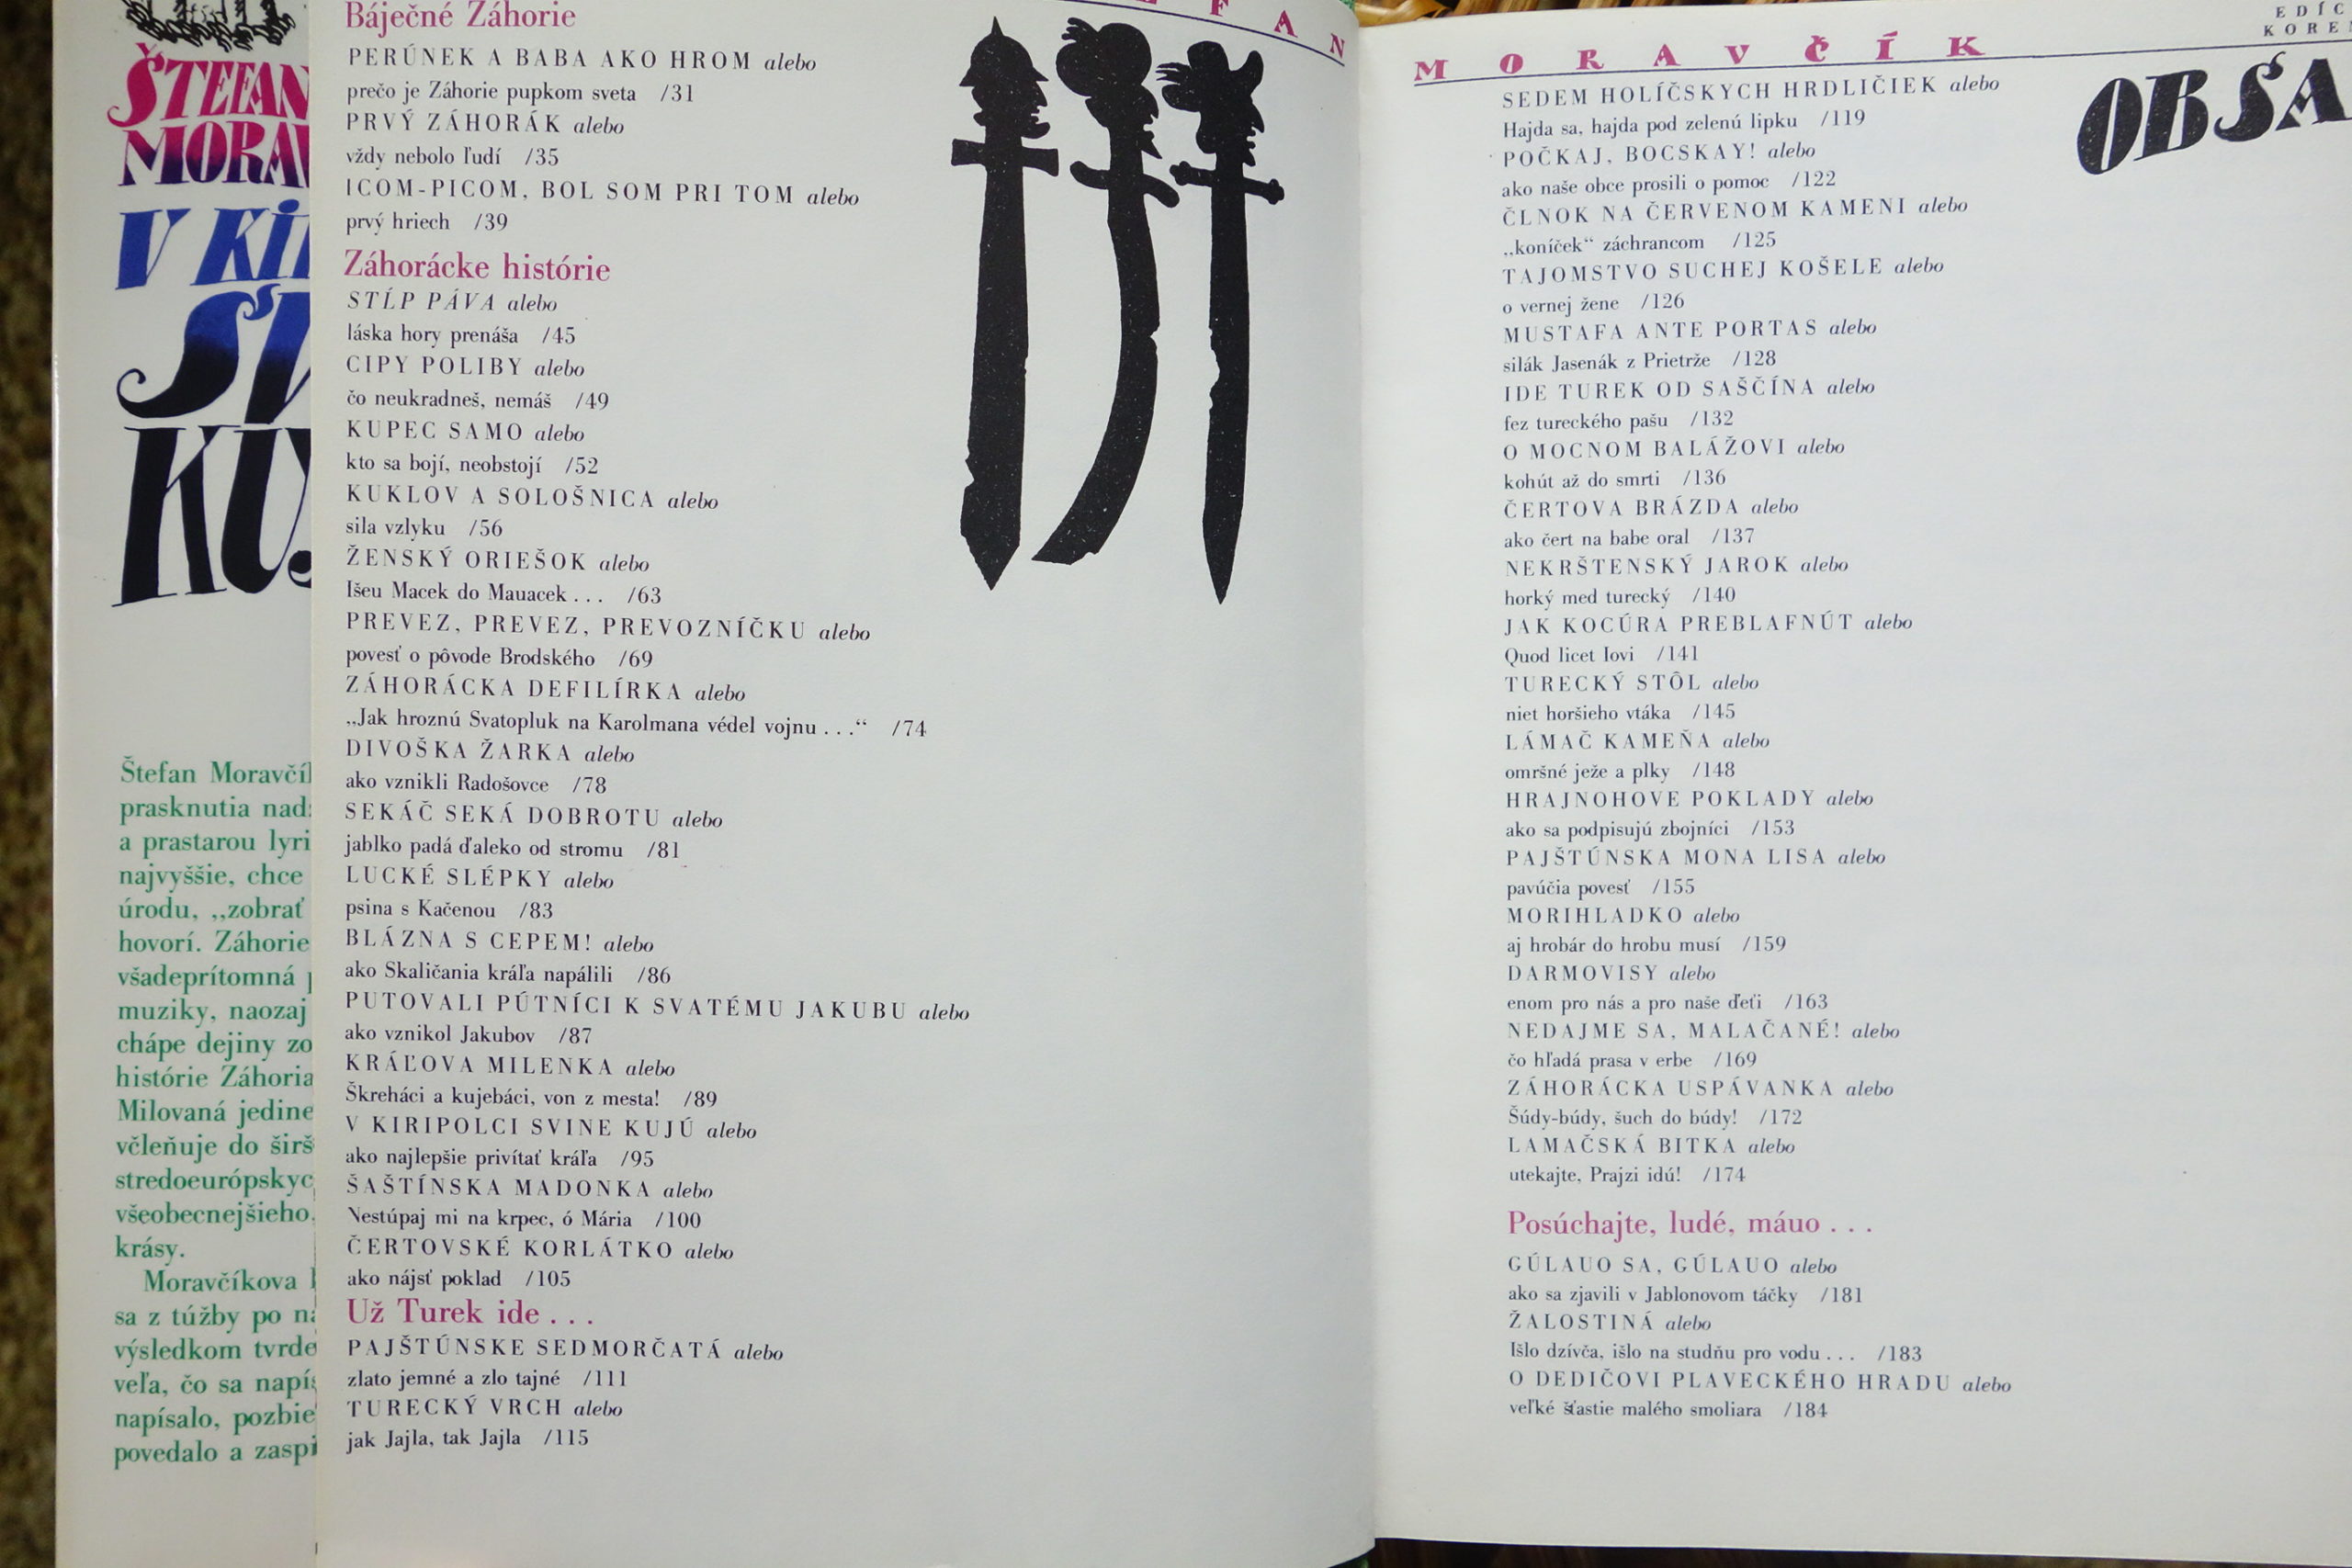 ŠTEFAN
V
Štefan
prasknutia
a prastarou
najvyššie, chce
úrodu, „zobrať
hovorí. Záhorie
všadeprítomná
muziky, naozaj
chápe dejiny
histórie Záhoria
Milovaná
včleňuje do
všeobecnejšieho,
krásy.
Moravčíkova
sa z túžby po
výsledkom
veľa, čo sa
napísalo,
povedalo a
Báječné Záhorie
PERÚNEK A BABA AKO HROM alebo
prečo je Záhorie pupkom sveta /31
PRVÝ ZÁHORÁK alebo
vždy nebolo ľudí /35
ICOM-PICOM, BOL SOM PRI TOM alebo
prvý hriech /39
Záhorácke histórie
STĹP PÁVA alebo
láska hory prenáša /45
CIPY POLIBY alebo
čo neukradneš, nemáš /49
KUPEC SAMO alebo
kto sa bojí, neobstojí /52
KUKLOV A SOLOŠNICA alebo
sila vzlyku /56
ŽENSKÝ ORIEŠOK alebo
Išeu Macek do Mauacek . . . /63
PREVEZ, PREVEZ, PREVOZNÍČKU alebo
povesť o pôvode Brodského /69
ZÁHORÁCKA DEFILÍRKA alebo
„Jak hroznú Svatopluk na Karolmana védel vojnu . . .“ /74
DIVOŠKA ŽARKA alebo
ako vznikli Radošovce /78
SEKÁČ SEKÁ DOBROTU alebo
jablko padá ďaleko od stromu /81
LUCKÉ SLÉPKY alebo
psina s Kačenou /83
BLÁZNA S CEPEM! alebo
ako Skaličania kráľa napálili /86
PUTOVALI PÚTNÍCI K SVATÉMU JAKUBU alebo
ako vznikol Jakubov /87
KRÁĽOVA MILENKA alebo
Škreháci a kujebáci, von z mesta! /89
V KIRIPOLCI SVINE KUJÚ alebo
ako najlepšie privítať kráľa /95
ŠAŠTÍNSKA MADONKA alebo
Nestúpaj mi na krpec, ó Mária /100
ČERTOVSKÉ KORLÁTKO alebo
ako nájsť poklad /105
Už Turek ide . . .
PAJŠTÚNSKE SEDMORČATÁ alebo
zlato jemné a zlo tajné /111
TURECKÝ VRCH alebo
jak Jajla, tak Jajla /115
MORAVČÍK
SEDEM HOLÍČSKYCH HRDLIČIEK alebo
Hajda sa, hajda pod zelenú lipku /119
POČKAJ, BOCSKAY! alebo
ako naše obce prosili o pomoc /122
ČLNOK NA ČERVENOM KAMENI alebo
„koníček“ záchrancom /125
TAJOMSTVO SUCHEJ KOŠELE alebo
o vernej žene /126
MUSTAFA ANTE PORTAS alebo
silák Jasenák z Prietrže /128
IDE TUREK OD SAŠČÍNA alebo
fez tureckého pašu /132
O MOCNOM BALÁŽOVI alebo
kohút až do smrti /136
ČERTOVA BRÁZDA alebo
ako čert na babe oral /137
NEKRŠTENSKÝ JAROK alebo
horký med turecký /140
JAK KOCÚRA PREBLAFNÚT alebo
Quod licet Iovi /141
TURECKÝ STÔL alebo
niet horšieho vtáka /145
LÁMAČ KAMEŇA alebo
omršné ježe a plky /148
HRAJNOHOVE POKLADY alebo
ako sa podpisujú zbojníci /153
PAJŠTÚNSKA MONA LISA alebo
pavúčia povesť /155
MORIHLADKO alebo
aj hrobár do hrobu musí /159
DARMOVISY alebo
enom pro nás a pro naše ďeťi /163
NEDAJME SA, MALAČANÉ! alebo
čo hľadá prasa v erbe /169
ZÁHORÁCKA USPÁVANKA alebo
Šúdy-búdy, šuch do búdy! /172
LAMAČSKÁ BITKA alebo
utekajte, Prajzi idú! /174
Posúchajte, ludé, máuo . . .
GÚLAUO SA, GÚLAUO alebo
ako sa zjavili v Jablonovom táčky /181
ŽALOSTINÁ alebo
Išlo dzívča, išlo na studňu pro vodu . . . /183
O DEDIČOVI PLAVECKÉHO HRADU alebo
veľké šťastie malého smoliara /184